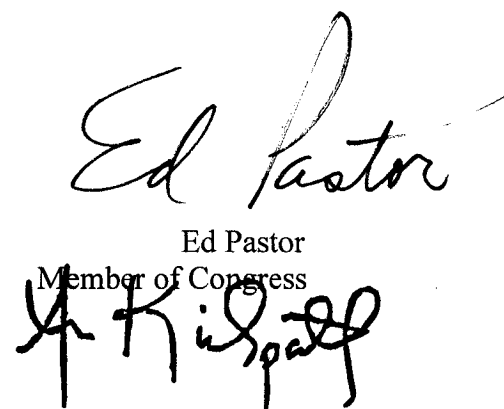 Ed Pastor
Ed Pastor
Member of Congress
Kirkpatrick